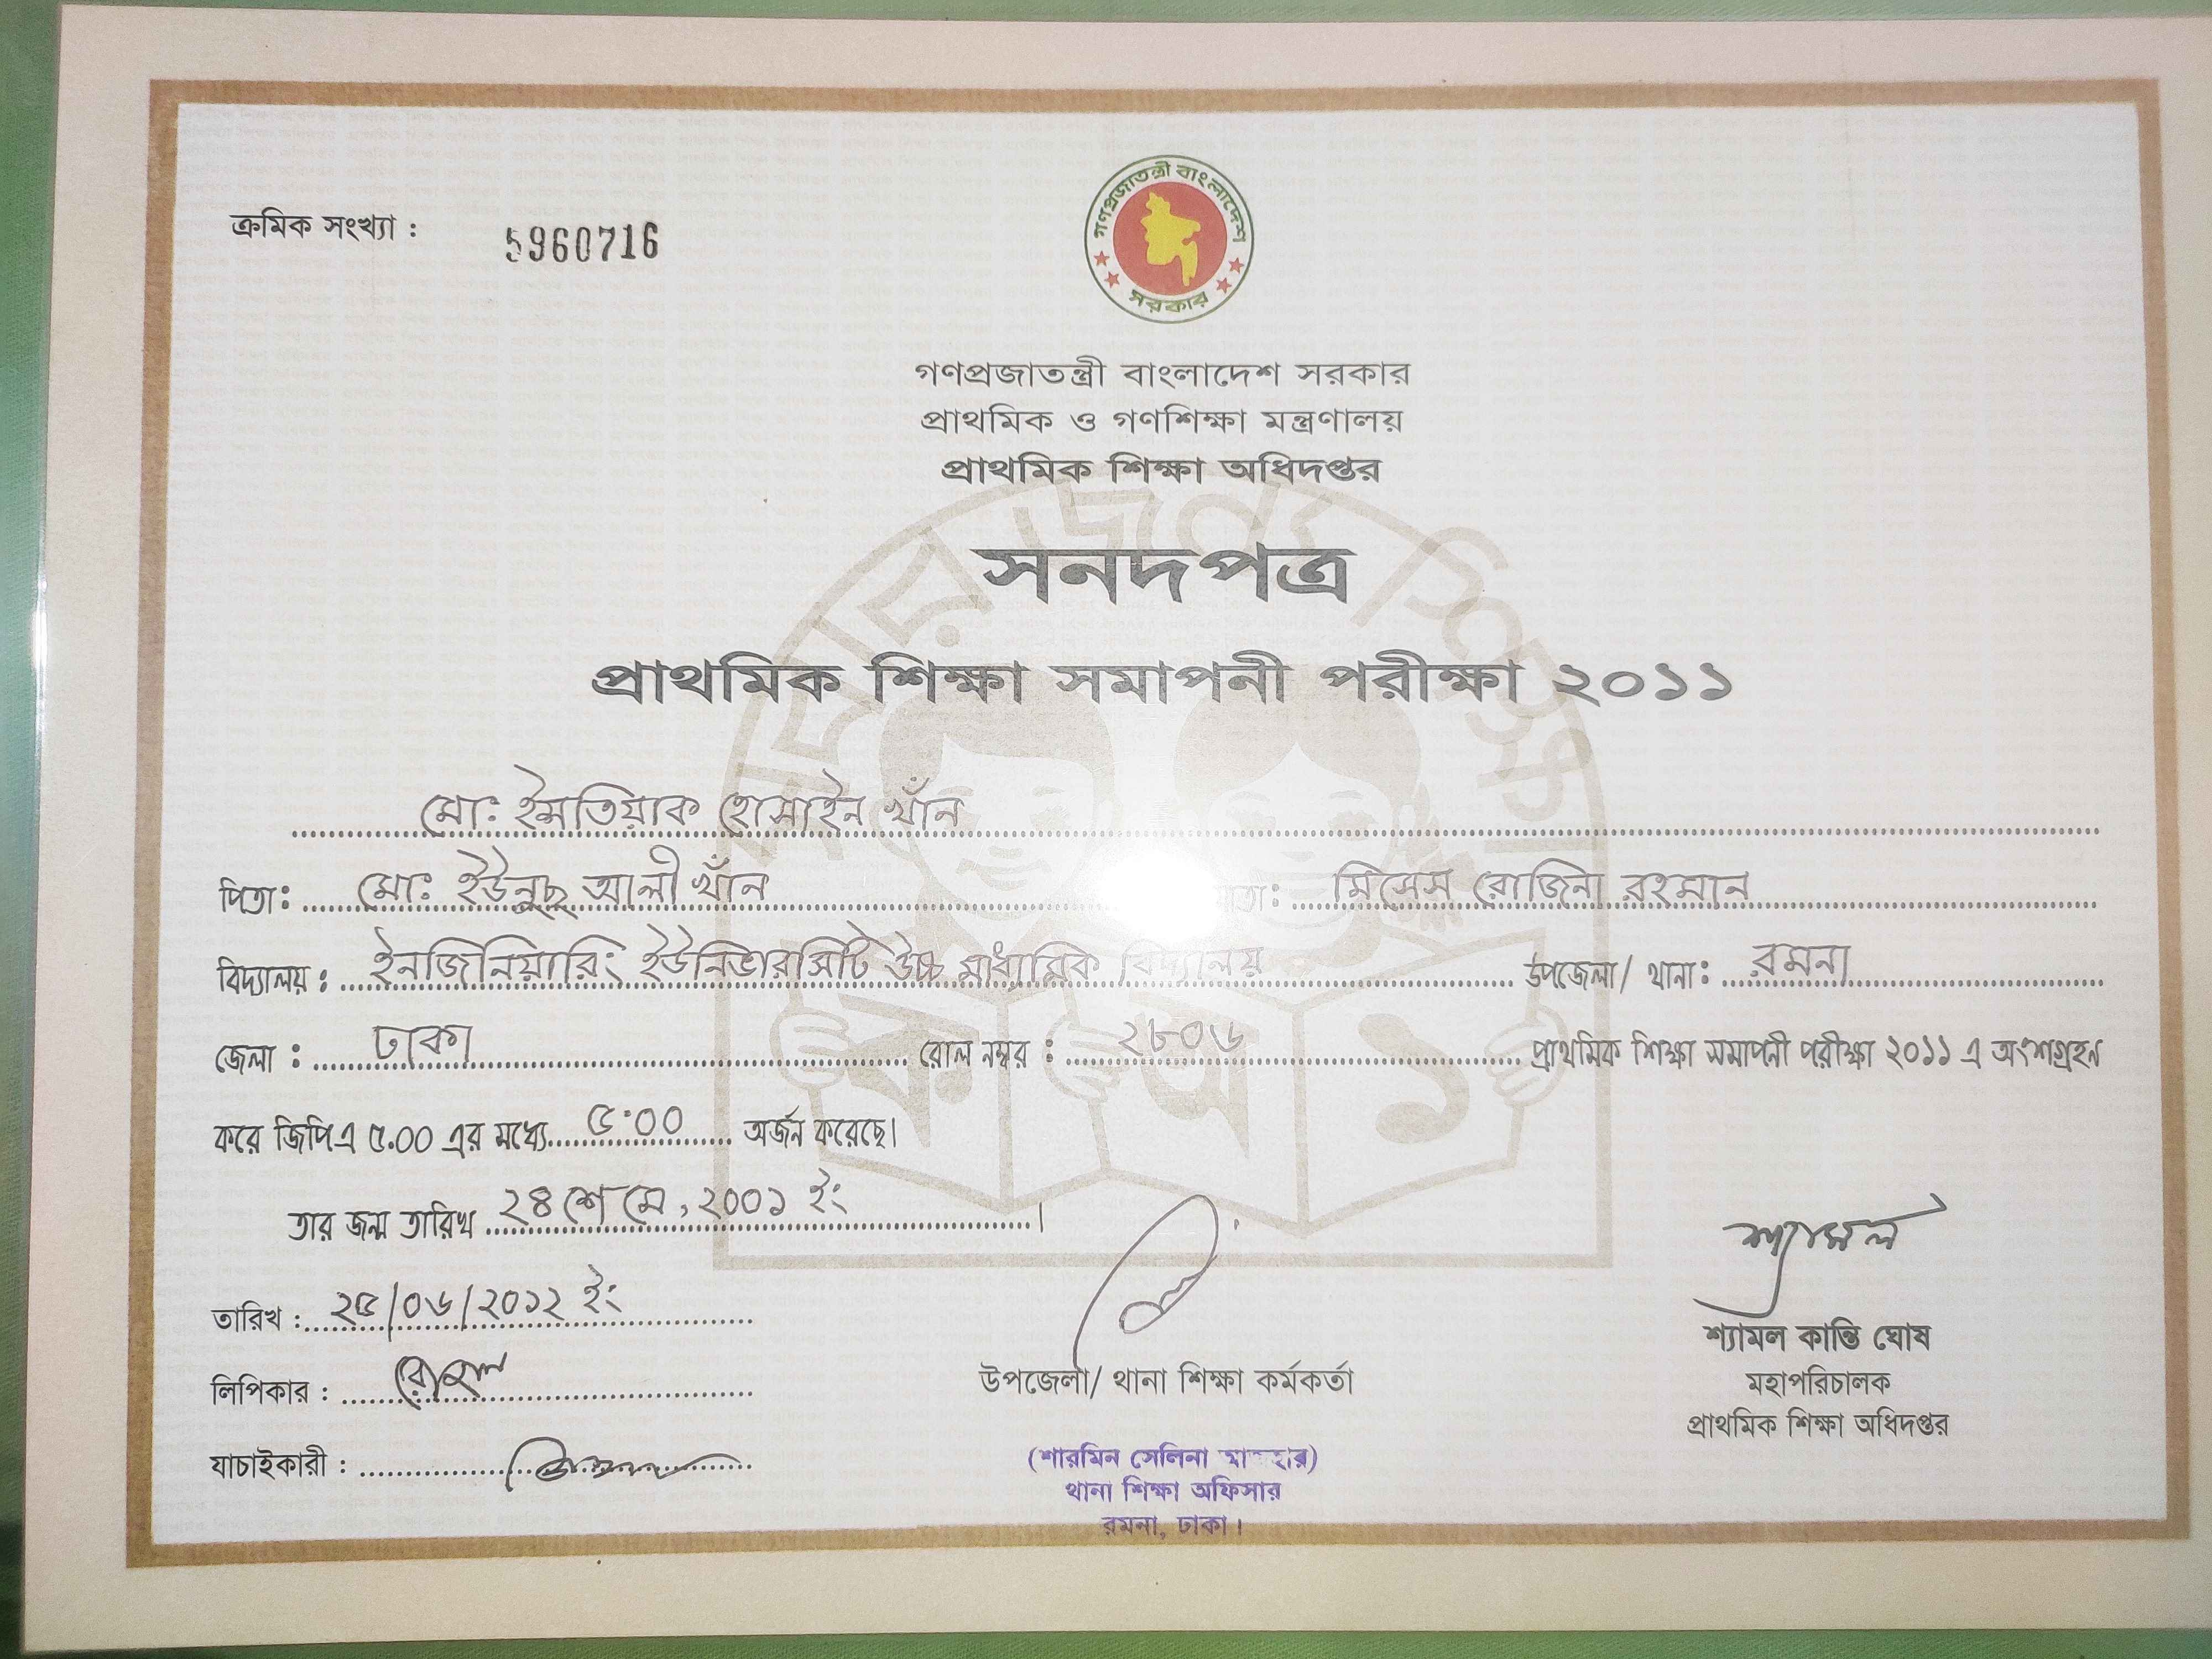 ক্রমিক সংখ্যা : 5960716
গণপ্রজাতন্ত্রী বাংলাদেশ
সরকার
গণপ্রজাতন্ত্রী বাংলাদেশ সরকার
প্রাথমিক ও গণশিক্ষা মন্ত্রণালয়
প্রাথমিক শিক্ষা অধিদপ্তর
সনদপত্র
প্রাথমিক শিক্ষা সমাপনী পরীক্ষা ২০১১
মোঃ ইমতিয়াক হোসাইন খাঁন
পিতা: মোঃ ইউনুছ আলী খাঁন মিসেস রোজিনা রহমান
বিদ্যালয় : ইনজিনিয়ারিং ইউনিভারসিটি উচ্চ মাধ্যমিক বিদ্যালয় উপজেলা/ থানা: রমনা
জেলা : ঢাকা রোল নম্বর : ২৮০৬ প্রাথমিক শিক্ষা সমাপনী পরীক্ষা ২০১১ এ অংশগ্রহন
করে জিপিএ ৫.০০ এর মধ্যে ৫.০০ অর্জন করেছে।
তার জন্ম তারিখ ২৪ শে মে, ২০০১ ইং ।
তারিখ : ২৫/০৬/২০১২ ইং
লিপিকার :
যাচাইকারী :
উপজেলা/ থানা শিক্ষা কর্মকর্তা
(শারমিন সেলিনা
থানা শিক্ষা অফিসার
রমনা, ঢাকা।
শ্যামল
শ্যামল কান্তি ঘোষ
মহাপরিচালক
প্রাথমিক শিক্ষা অধিদপ্তর
সবার জন্য শিক্ষা
ক অ ১